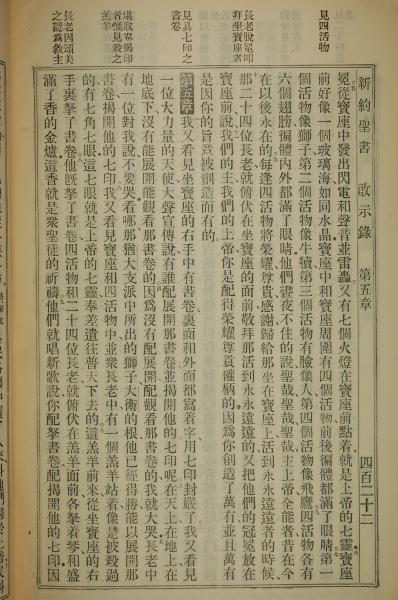 新約聖書 啟示錄 第五章 四百二十二
見四活物
長老脫冕叩
拜坐寶座者
見具七印之
書卷
堪取卷揭印
者惟見殺之
羔羊
長老因頌美
之認爲救主
冕從寶座中發出閃電和聲音並雷轟又有七個火燈在寶座前點着就是上帝的七靈寶座
前好像一個玻璃海如同水晶寶座中和寶座周圍有四個活物前後徧體都滿了眼睛第一
個活物像獅子第二個活物像牛犢第三個活物有臉像人第四個活物像飛鷹四活物各有
六個翅膀徧體內外都滿了眼睛他們晝夜不住的說聖哉聖哉聖哉主上帝全能者昔在今
在以後永在的每逢四活物將榮耀尊貴感謝歸給那坐在寶座上活到永永遠遠者的時候
那二十四位長老就俯伏在坐寶座的面前敬拜那活到永永遠遠的又把他們的冠冕放在
寶座前說我們的主我們的上帝你是配得榮耀尊貴權柄的因爲你創造了萬有並且萬有
是因你的旨意被創造而有的
第五章 我又看見坐寶座的右手中有書卷裏面和外面都寫着字用七印封嚴了我又看見
一位大力量的天使大聲宣傳說有誰配展開那書卷並揭開他的七印呢在天上在地上在
地底下沒有能展開能觀看那書卷的因爲沒有配展開配觀看那書卷的我就大哭長老中
有一位對我說不要哭看哪那猶大支派中所出的獅子大衛的根他已經得勝能以展開那
書卷揭開他的七印我又看見寶座和四活物中並衆長老中有一個羔羊站着像是被殺過
的有七角七眼這七眼就是上帝的七靈奉差遣往普天下去的這羔羊前來從坐寶座的右
手裏拏了書卷他旣拏了書卷四活物和二十四位長老就俯伏在羔羊面前各拏着琴和盛
滿了香的金爐這香就是衆聖徒的祈禱他們就唱新歌說你配拏書卷配揭開他的七印因